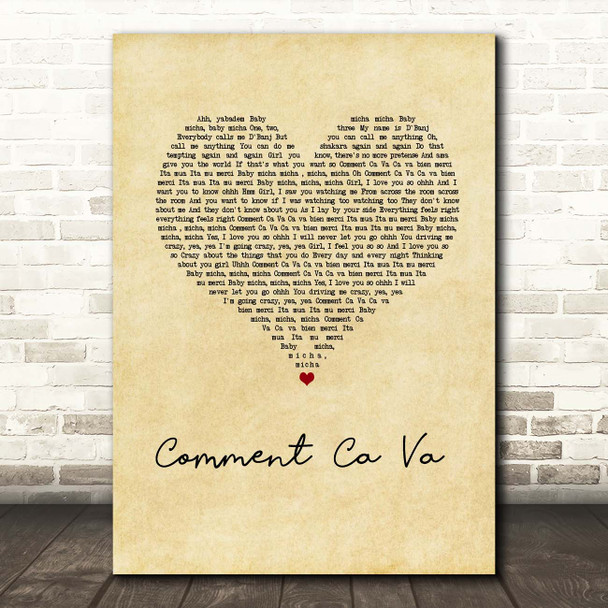 Ahh, yabadem Baby micha micha Baby
micha, baby micha One, two, three My name is D'Banj
Everybody calls me D'Banj But you can call me anything Oh,
call me anything You can do me shakara again and again Do that
tempting again and again Girl you know, there's no more pretense And ama
give you the world If that's what you want so Comment Ca Va Ca va bien merci
Ita mua Ita mu merci Baby micha, micha , micha Oh Comment Ca Va Ca va bien
merci Ita mua Ita mu merci Baby micha, micha, micha Girl, I love you so ohhh And I
want you to know ohhh Hmm Girl, I saw you watching me From across the room across
the room And you want to know if I was watching too watching too They don't know
about me And they don't know about you As I lay by your side Everything feels right
everything feels right Comment Ca Va Ca va bien merci Ita mua Ita mu merci Baby micha
, micha, micha Comment Ca Va Ca va bien merci Ita mua Ita mu merci Baby micha,
micha, micha Yes, I love you so ohhh I will never let you go ohhh You driving me
crazy, yea, yea I'm going crazy, yea, yea Girl, I feel you so so And I love you so
so Crazy about the things that you do Every day and every night Thinking
about you girl Uhhh Comment Ca Va Ca va bien merci Ita mua Ita mu merci
Baby micha, micha, micha Comment Ca Va Ca va bien merci Ita mua Ita
mu merci Baby micha, micha, micha Yes, I love you so ohhh I will
never let you go ohhh You driving me crazy, yea, yea
I'm going crazy, yea, yea Comment Ca Va Ca va
bien merci Ita mua Ita mu merci Baby
micha, micha, micha Comment Ca
Va Ca va bien merci Ita
mua Ita mu merci
Baby micha,
micha,
micha
Comment Ca Va